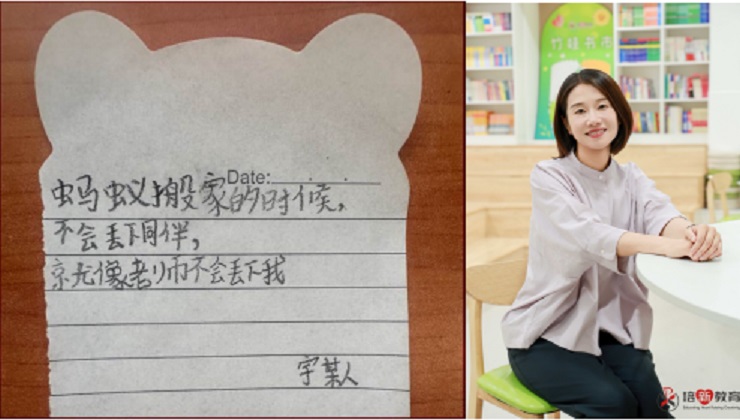 Date:
蚂蚁搬家的时候,
不会丢下同伴,
就像老师不会丢下我
宇某人
竹娃书市
培新教育